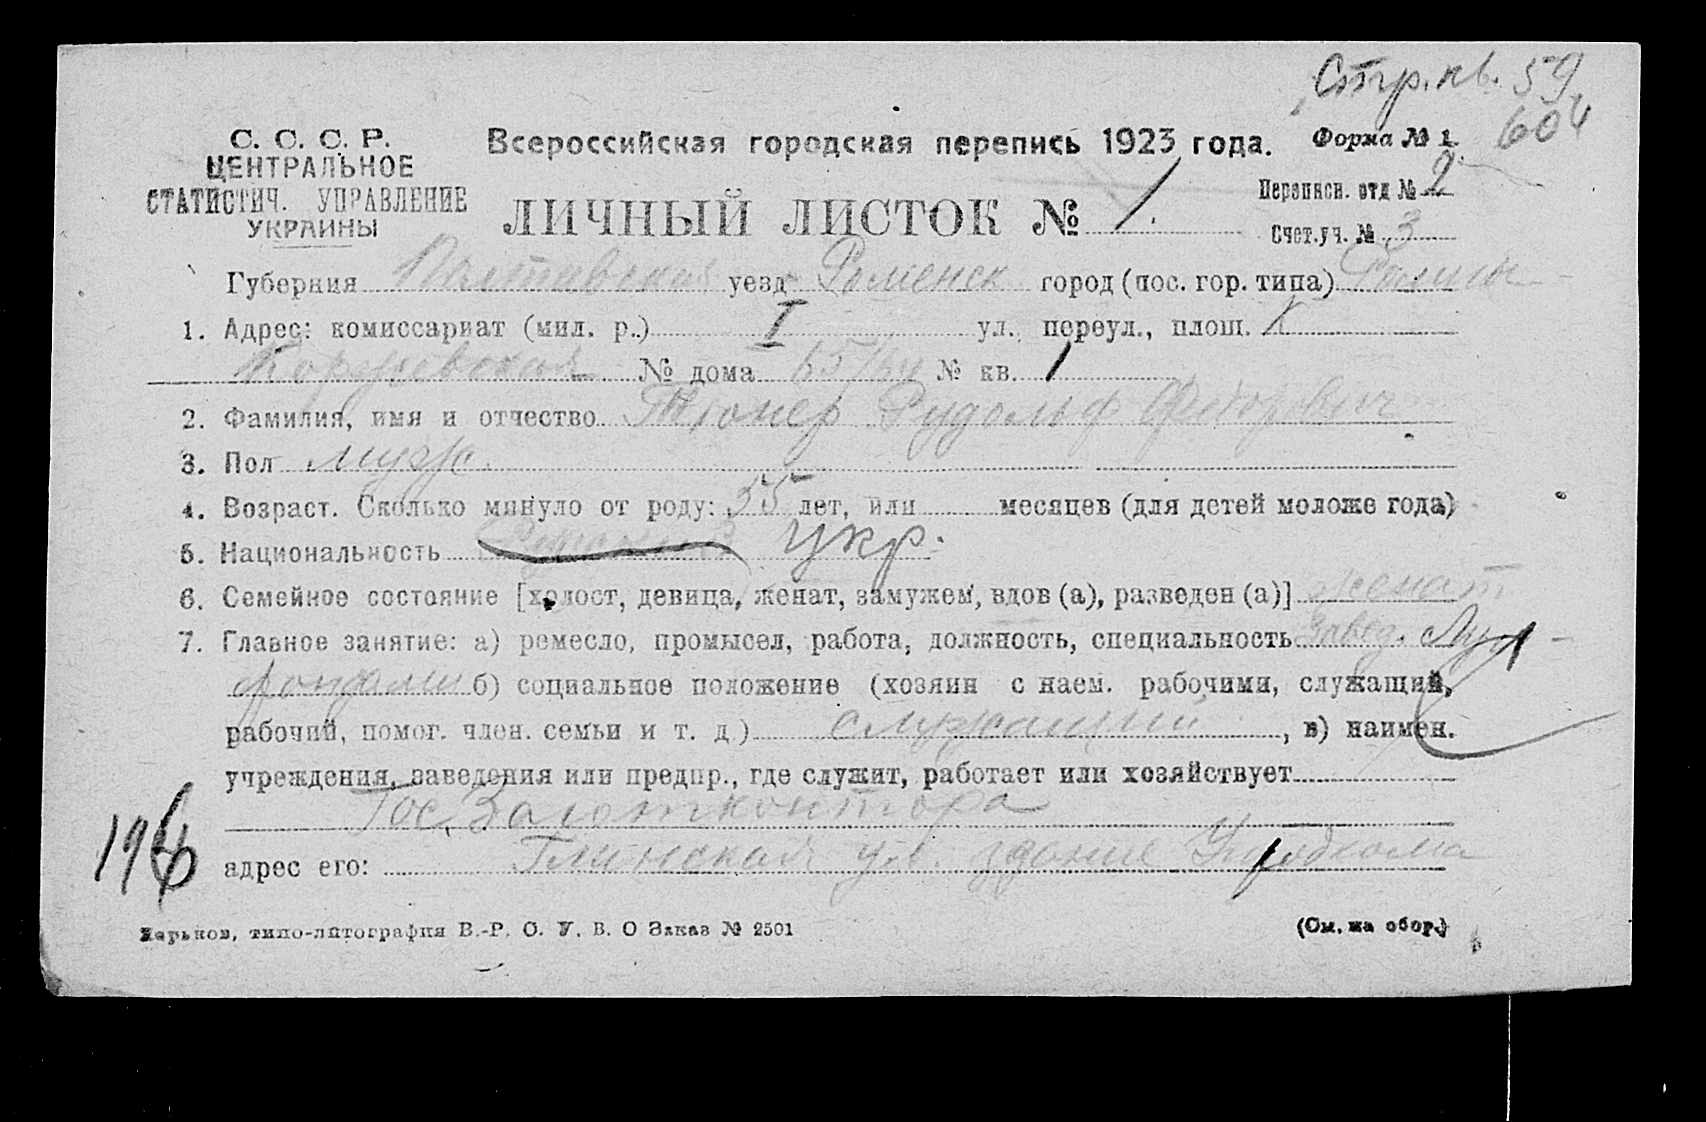 Стр. кв. 59
604
С. С. С. Р.
ЦЕНТРАЛЬНОЕ
СТАТИСТИЧ. УПРАВЛЕНИЕ
УКРАИНЫ
Всероссийская городская перепись 1923 года. Форма № 1.
ЛИЧНЫЙ ЛИСТОК № 1.
Переписн. отд № 2
Счет.уч. № 3
Губерния Полтавская уезд Роменск город (пос. гор. типа) Ромны
1. Адрес: комиссариат (мил. р..) I ул., переул., площ.
№ дома 65/54 № кв. 1
2. Фамилия, имя и отчество Рудольф Федорович
3. Пол муж.
4. Возраст. Сколько минуло от роду: 55 лет, или месяцев (для детей моложе года)
5. Национальность Укр.
6. Семейное состояние [холост, девица, женат, замужем, вдов (а), разведен (а)] женат
7. Главное занятие: а) ремесло, промысел, работа, должность, специальность Завед.
фондами б) социальное положение (хозяин с наем. рабочими, служащий,
рабочий, помог. член. семьи и т. д) служащий, в) наимен.
учреждения, заведения или предпр., где служит, работает или хозяйствует
Гос.
196
адрес его: Глинская ул здание
Харьков, типо-литография В.-Р. О. У. В. О Заказ № 2501
(См. на обор.)